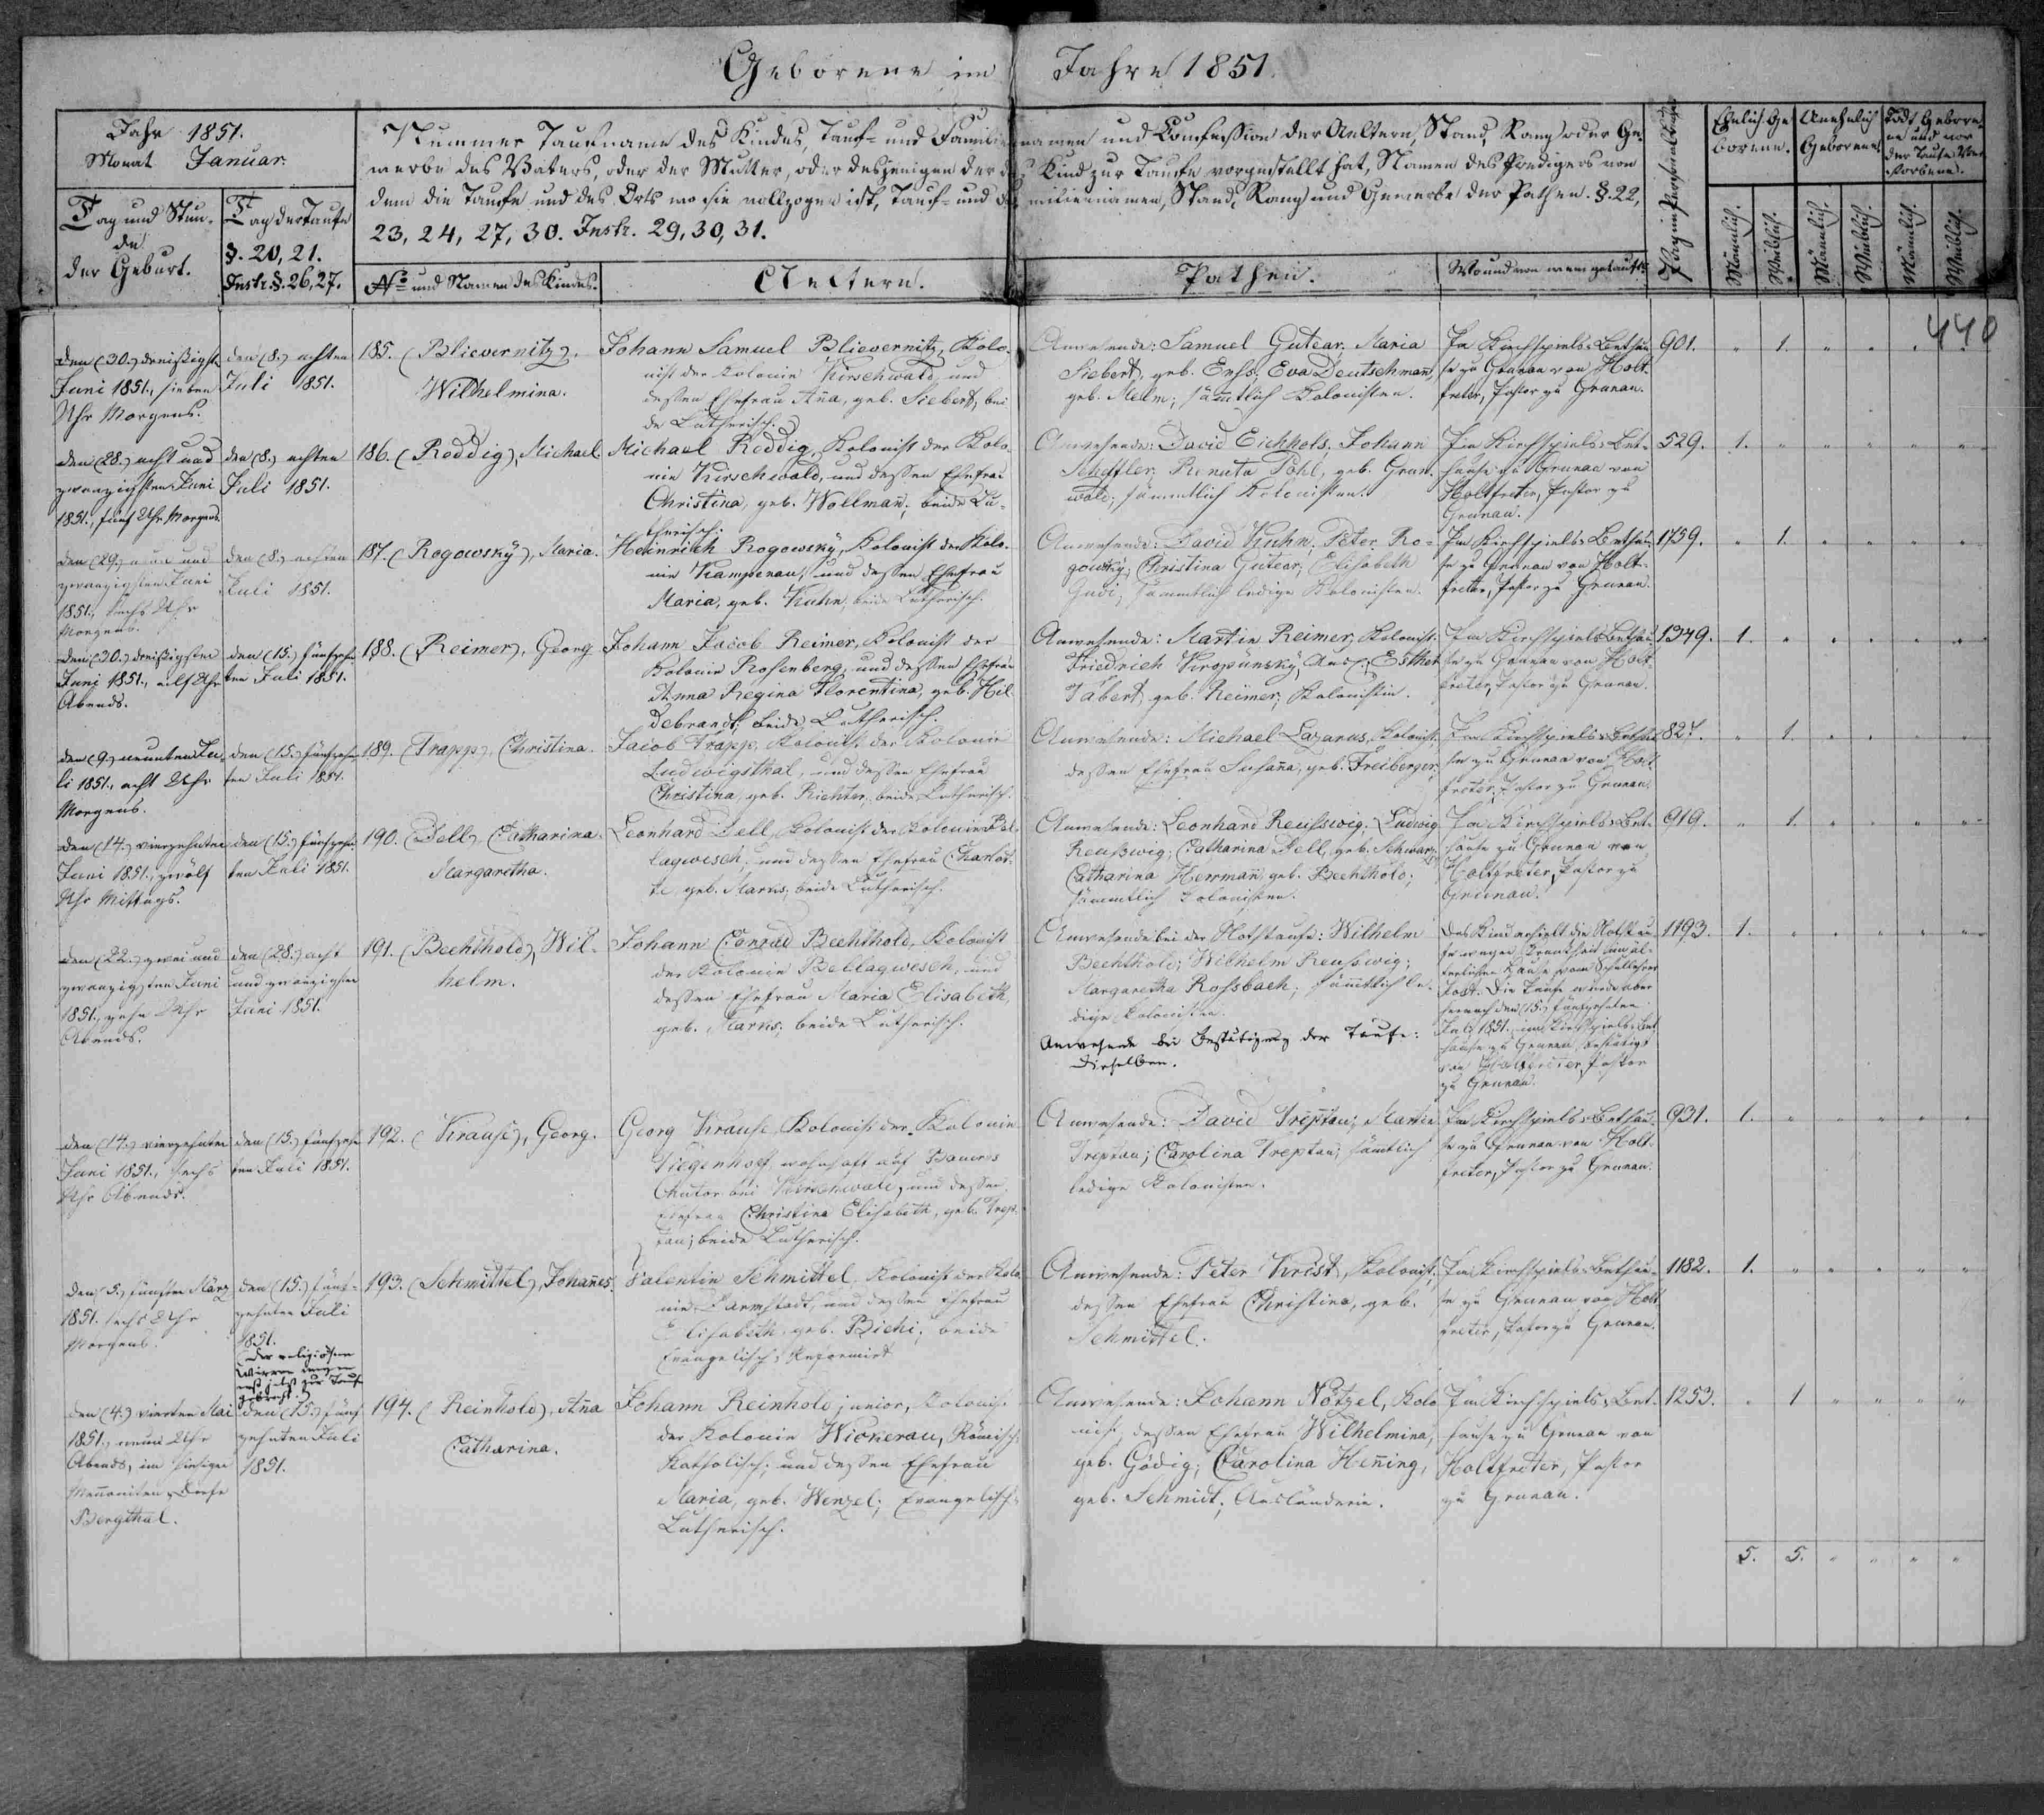 Geborene im Jahre 1851.
440
Jahr 1851.
Monat Januar.
Tag und Stun-
de
der Geburt.
Tag der Taufe
§. 20, 21.
Instr. §. 26, 27.
Nummer Taufname des Kindes, Tauf- und Familiennamen und Confession der Aeltern, Stand, Rang oder Ge-
werbe des Vaters, oder der Mutter, oder desjenigen der das Kind zur Taufe vorgestellt hat, Namen des Predigers von
dem die Taufe und des Orts wo sie vollzogen ist, Tauf- und Familiennamen, Stand, Rang und Gewerbe der Pathen. §. 22,
23, 24, 27, 30. Instr. 29, 30, 31.
No und Namen des Kindes.
Aeltern.
Pathen.
Wo und von wem getauft.
Pag. im Personalbuche
Ehelich Ge-
borene.
Unehelich
Geborene.
Todt Gebore-
ne und vor
der Taufe Ver-
storbene.
Männlich. Weiblich. Männlich. Weiblich. Männlich. Weiblich.
den (30.) dreißigsten
Juni 1851, sieben
Uhr Morgens.
den (8.) achten
Juli 1851.
185. (Blievernitz),
Wilhelmina.
Johann Samuel Blievernitz, Kolo-
nist der Kolonie Kirschwald, und
dessen Ehefrau Anna, geb. Siebert, bei-
de Lutherisch.
Anwesende: Samuel Gutear, Maria
Siebert, geb. Enss; Eva Deutschmann,
geb. Melm; sämtlich Kolonisten.
Im Kirchspiels-Bethau-
se zu Grunau von Holt-
freter, Pastor zu Grunau.
901. " 1. " " " "
den (28.) acht und
zwanzigsten Juni
1851, fünf Uhr Morgens.
den (8.) achten
Juli 1851.
186. (Reddig), Michael
Michael Reddig, Kolonist der Kolo-
nie Kirschwald, und dessen Ehefrau
Christina, geb. Wollmann; beide Lu-
therisch.
Anwesende: David Eichhels; Johann
Scheffler; Renuta Pohl, geb. Grun-
wald; sämmtlich Kolonisten.
Im Kirchspiels-Bet-
hause zu Grunau von
Holtfreter, Pastor zu
Grunau.
529. 1. " " " " "
den (29.) neun und
zwanzigsten Juni
1851, sechs Uhr
Morgens.
den (8.) achten
Juli 1851.
187. (Rogowsky), Maria.
Heinrich Rogowsky, Kolonist der Kolo-
nie Kampenau, und dessen Ehefrau
Maria, geb. Kuhn, beide Lutherisch.
Anwesende: David Kuhn, Peter Ro-
gowsky; Christina Gutear; Elisabeth
Gudi; sämmtlich ledige Kolonisten.
Im Kirchspiels-Bethau-
se zu Grunau von Holt-
freter, Pastor zu Grunau.
1759. " 1. " " " "
den (30.) dreißigsten
Juni 1851, elf Uhr
Abends.
den (15.) fünfzehn-
ten Juli 1851.
188. (Reimer), Georg
Johann Jacob Reimer, Kolonist der
Kolonie Rosenberg, und dessen Ehefrau
Anna Regina Florentina, geb. Hil-
debrandt; beide Lutherisch.
Anwesende: Martin Reimer, Kolonist;
Friedrich Kropünsky, Esther
Tabert, geb. Reimer, Kolonistin.
Im Kirchspiels-Bethau-
se zu Grunau von Holt-
freter, Pastor zu Grunau.
1349. 1. " " " " "
den (9.) neunten Ju-
li 1851, acht Uhr
Morgens.
den (15.) fünfzehn-
ten Juli 1851.
189. (Trapp), Christina.
Jacob Trapp, Kolonist der Kolonie
Ludwigsthal, und dessen Ehefrau
Christina, geb. Richter, beide Lutherisch.
Anwesende: Michael Lazarus, Kolonist,
dessen Ehefrau Susanna, geb. Freiberger.
Im Kirchspiels-Bethau-
se zu Grunau von Holt-
freter, Pastor zu Grunau.
827. " 1. " " " "
den (14.) vierzehnten
Juni 1851, zwölf
Uhr Mittags.
den (15.) fünfzehn-
ten Juli 1851.
190. (Dell), Catharina
Margaretha.
Leonhard Dell, Kolonist der Kolonie Bel-
lagwesch, und dessen Ehefrau Charlot-
te, geb. Marks, beide Lutherisch.
Anwesende: Leonhard Reusswig; Ludwig
Reusswig; Catharina Dell, geb. Schwarz;
Catharina Herrmann, geb. Bechthold;
sämmtlich Kolonisten.
Im Kirchspiels-Bet-
hause zu Grunau von
Holtfreter, Pastor zu
Grunau.
919. " 1. " " " "
den (22.) zwei und
zwanzigsten Juni
1851, zehn Uhr
Abends.
den (28.) acht
und zwanzigsten
Juni 1851.
191. (Bechthold), Wil-
helm.
Johann Conrad Bechthold, Kolonist
der Kolonie Bellagwesch, und
dessen Ehefrau Maria Elisabeth,
geb. Marks; beide Lutherisch.
Anwesende bei der Nothtaufe: Wilhelm
Bechthold; Wilhelm Reusswig;
Margaretha Rossbach; sämtlich le-
dige Kolonisten.
Anwesende bei Bestätigung der Taufe:
Dieselben.
Das Kind erhielt die Nothtau-
fe wegen Krankheit im äl-
terlichen Hause vom Schullehrer
Jost. Die Taufe wurde aber
hernach den (15.) fünfzehnten
Juli 1851. im Kirchspiels-Bet-
hause zu Grunau bestätigt
von Holtfreter, Pastor
zu Grunau.
1193. 1. " " " " "
den (14.) vierzehnten
Juni 1851, sechs
Uhr Abends.
den (15.) fünfzehn-
ten Juli 1851.
192. (Krause), Georg.
Georg Krause, Kolonist der Kolonie
Tiegenhoff, wohnhaft auf Bauers
Chutor bei Kirschwald, und dessen
Ehefrau Christina Elisabeth, geb. Trep-
tau; beide Lutherisch.
Anwesende: David Treptau; Martin
Treptau; Carolina Treptau; sämtlich
ledige Kolonisten.
Im Kirchspiels-Bethau-
se zu Grunau von Holt-
freter, Pastor zu Grunau.
931. 1. " " " " "
den (5.) fünften März
1851. sechs Uhr
Morgens.
den (15.) fünf-
zehnten Juli
1851.
(der religiösen
Wirren wegen
erst jetzt zur Taufe
gebracht.)
193. (Schmittel), Johannes.
Valentin Schmittel, Kolonist der Kolo-
nie Darmstadt, und dessen Ehefrau
Elisabeth, geb. Bichi; beide
Evangelisch-Reformirt
Anwesende: Peter Krist, Kolonist,
dessen Ehefrau Christina, geb.
Schmittel.
Im Kirchspiels-Bethau-
se zu Grunau von Holt-
freter, Pastor zu Grunau.
1182. 1. " " " " "
den (4.) vierten Mai
1851, neun Uhr
Abends, im hiesigen
Mennoniten-Dorfe
Bergthal.
den (15.) fünf-
zehnten Juli
1851.
194. (Reinhold), Anna
Catharina.
Johann Reinhold junior, Kolonist
der Kolonie Wickerau, Römisch-
Katholisch; und dessen Ehefrau
Maria, geb. Wenzel; Evangelisch-
Lutherisch.
Anwesende: Johann Nötzel, Kolo-
nist, dessen Ehefrau Wilhelmina,
geb. Gödig; Carolina Henning,
geb. Schmidt, Ausländerin.
Im Kirchspiels-Bet-
hause zu Grunau von
Holtfreter, Pastor
zu Grunau.
1253. " 1 " " " "
5. 5. " " " "